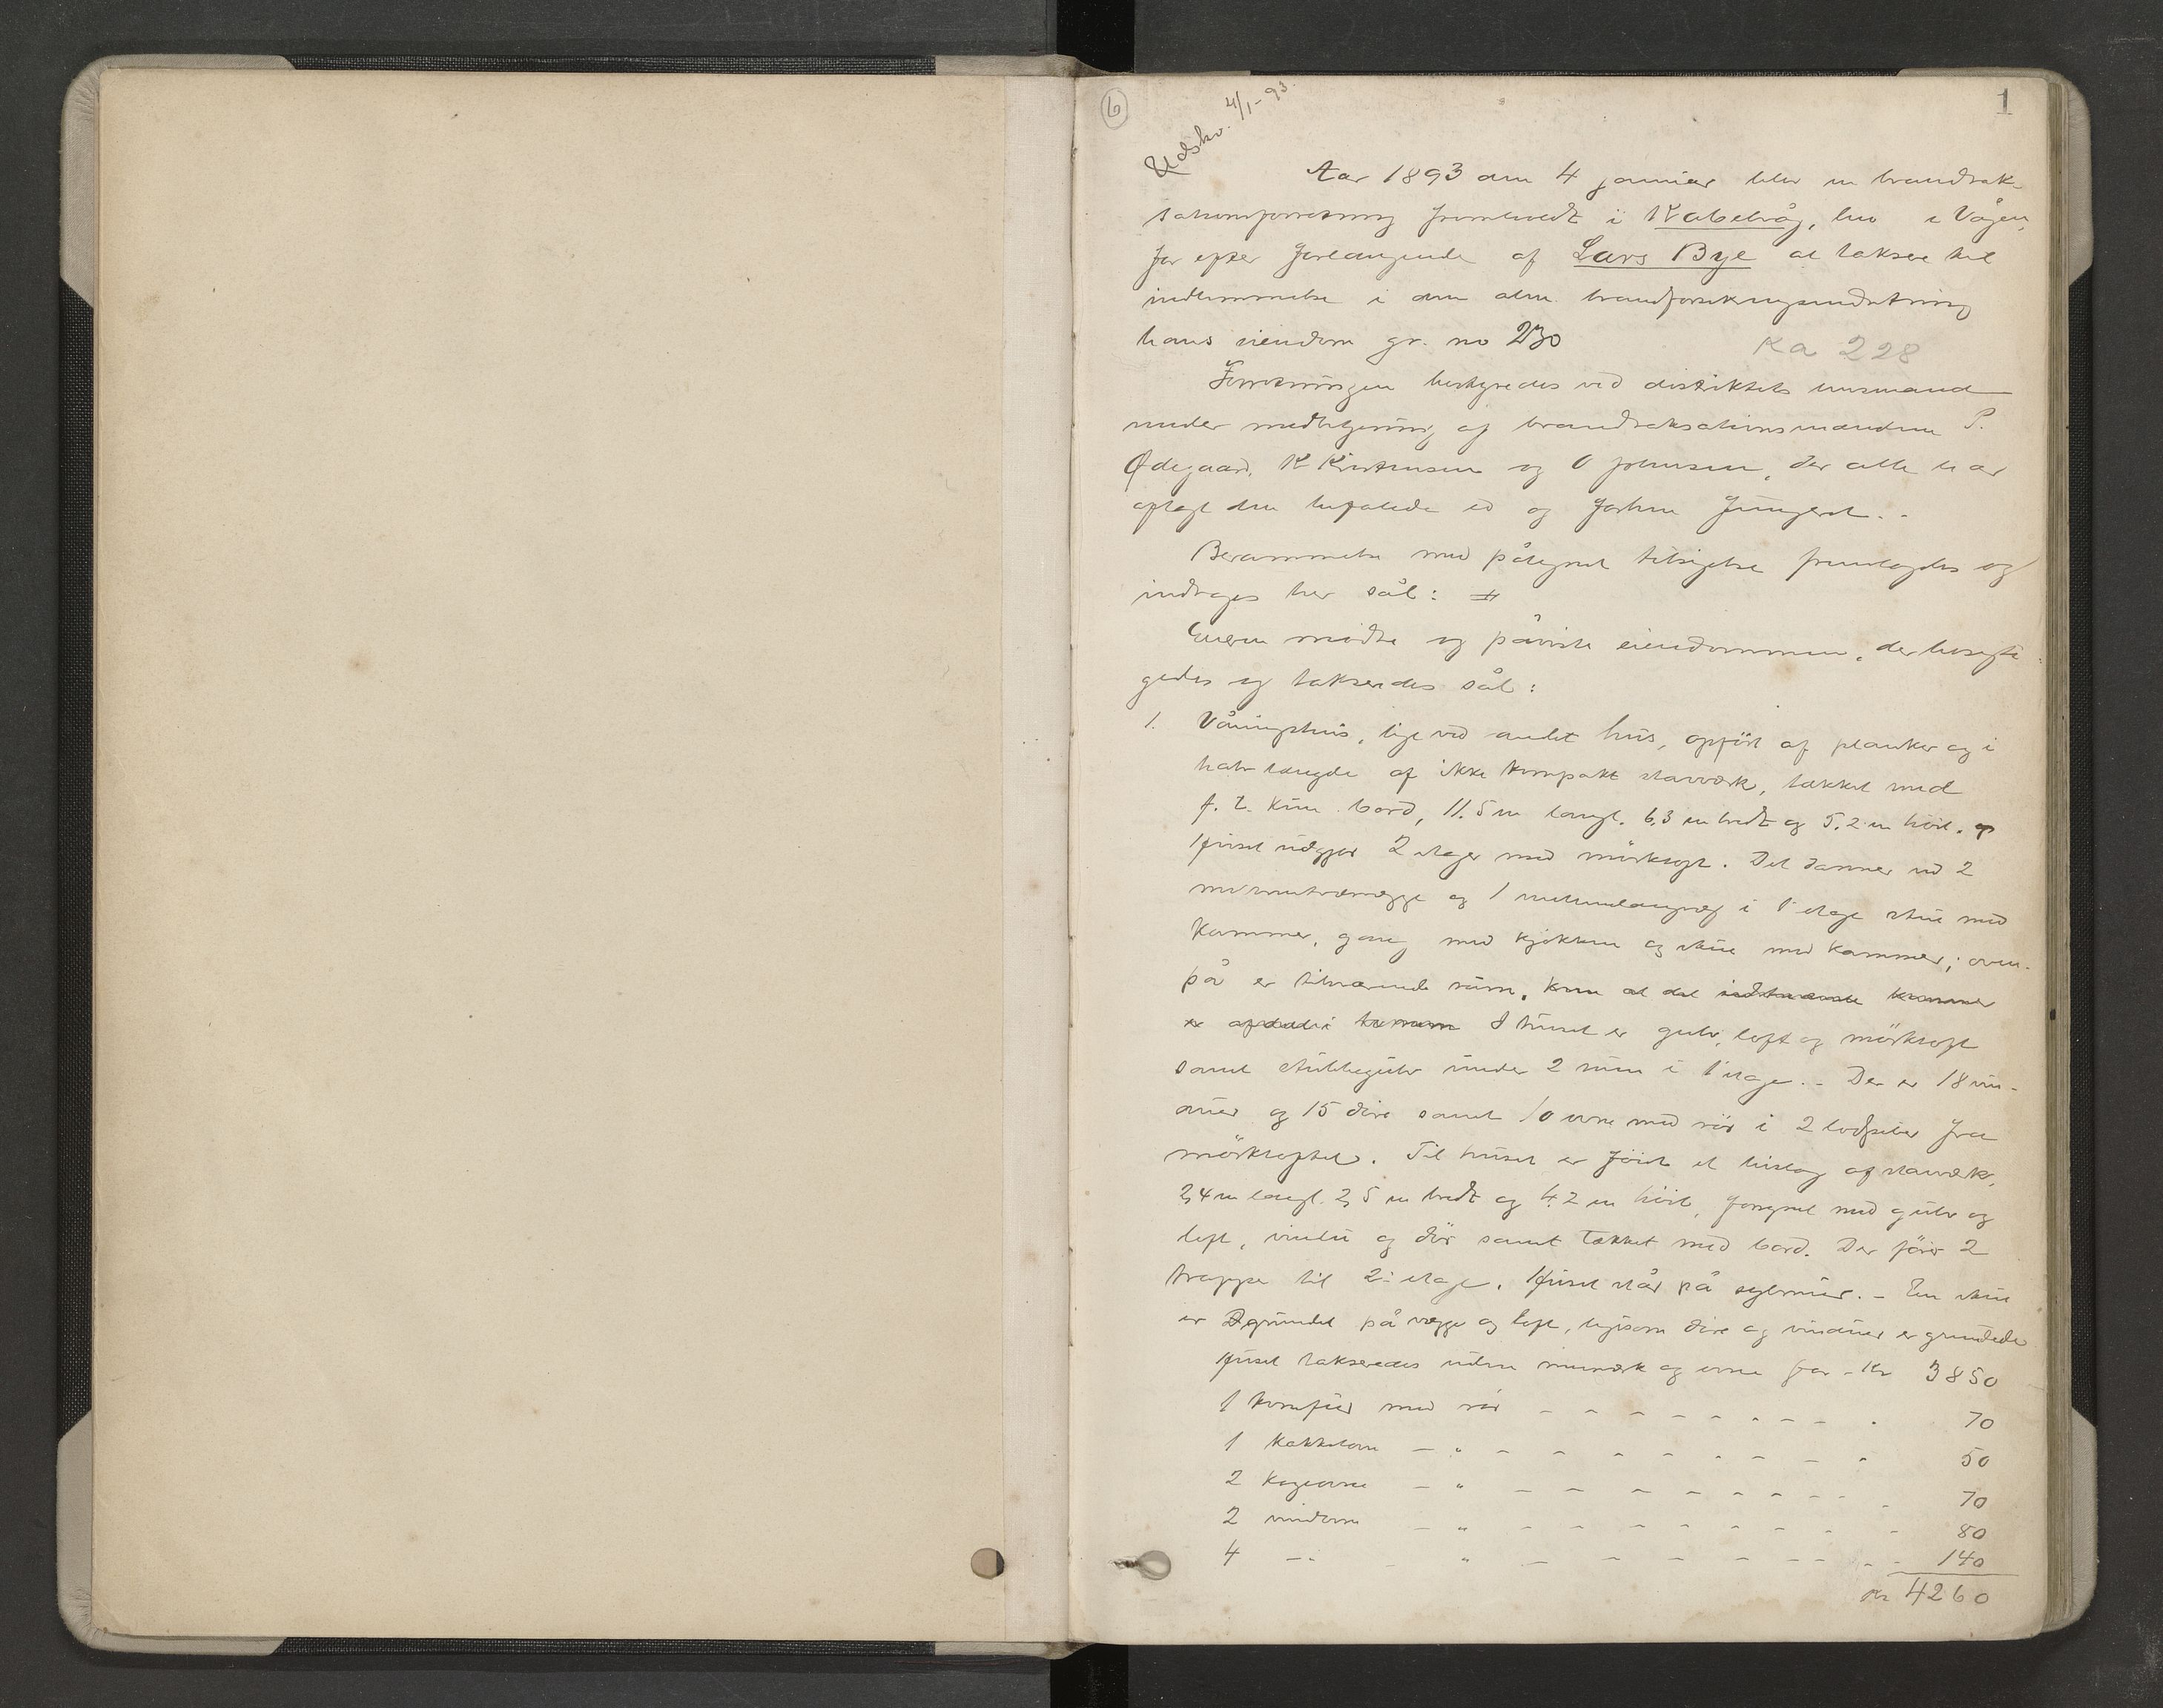 6
Udskr. 4/1-93.
1
Aar 1893 den 4 januar blev en brandtak-
sationsforretning fremholdt i Kabelvåg, i Vågen,
for efter forlangende af Lars Bye at taksere til
indlemmelse i den alm. brandforsikringsindretning
hans eiendom gr. no 230
Ka 228
Forretningen bestyredes ved distriktets lensmand
under medbetjening af brandtaksationsmændene P.
Ødegaard, K Kristensen og O Johnsen, der alle har
aflagt den befalede ed og forhen fungeret. -
Berammelse med påtegnet tilsigelse fremlagdes og
indtages her sål: #
Eieren mødte og påviste eiendommen, der besigti-
gedes og takseredes sål:
1. Våningshus, lige ved andet hus, opført af planker og i
halv længde af ikke kompakt stavværk, tækket med
bord, 11.5 m langt, 6,3 m bredt og 5.2 m høit.
Huset udgjør 2 etager med mørkloft. Det danner ved 2
mellemtværvægge og 1 mellemlangvæg i 1' etage stue med
kammer, gang med kjøkken og stue med kammer; oven-
på er tilsvarende rum, kun at det
er I huset er gulv, loft og mørkloft
samt stubbegulv under 2 rum i 1' etage. - Der er 18 vin-
duer og 15 døre samt 10 ovne med rør i 2 lodpiber fra
mørkloftet. Til huset er føiet et bislag af stavværk,
2,4 m langt 2,5 m bredt og 4.2 m høit, forsynet med gulv og
loft, vindu og dør samt tækket med bord. Der fører 2
trapper til 2: etage. Huset står på sylmur. - En stue
er grundet på vægge og loft, ligesom døre og vinduer er grundede
Huset takseredes uden murværk og ovne for - Kr 3850
1 komfur med rør - - - - - - - - - 70
1 kakkelovn - " - - - - - - - - 50
2 kogeovne - " - - - - - - - - 70
2 vindovne - " - - - - - - - - 80
4 -"- - " - - - - - - - - 140
Kr 4260